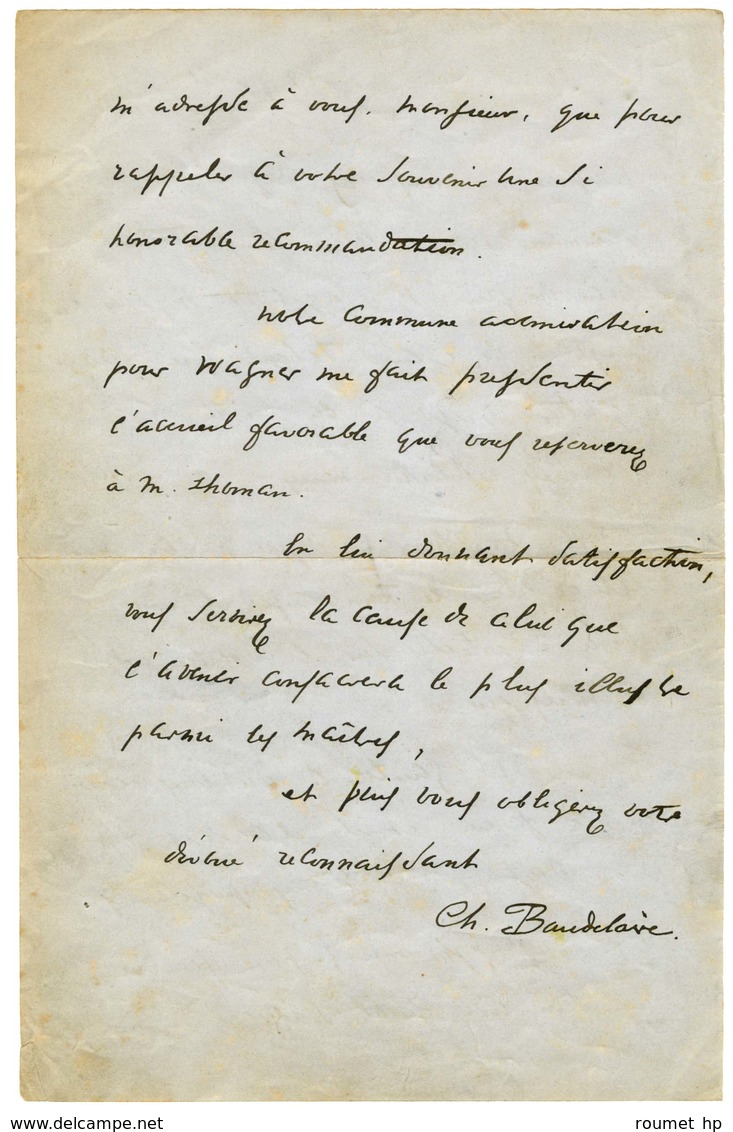 m'adresse à vous, monsieur, que pour
rappeler à votre souvenir une si
honorable recommandation.
notre commune admiration
pour Wagner me fait pressentir
l'accueil favorable que vous reserverez
à M. Thoman.
En lui donnant satisfaction,
vous servirez la cause de celui que
l'avenir consacrera le plus illustre
parmi les maîtres,
et puis vous obligerez votre
dévoué reconnaissant
Ch. Baudelaire.
delcampe.net
roumet hp